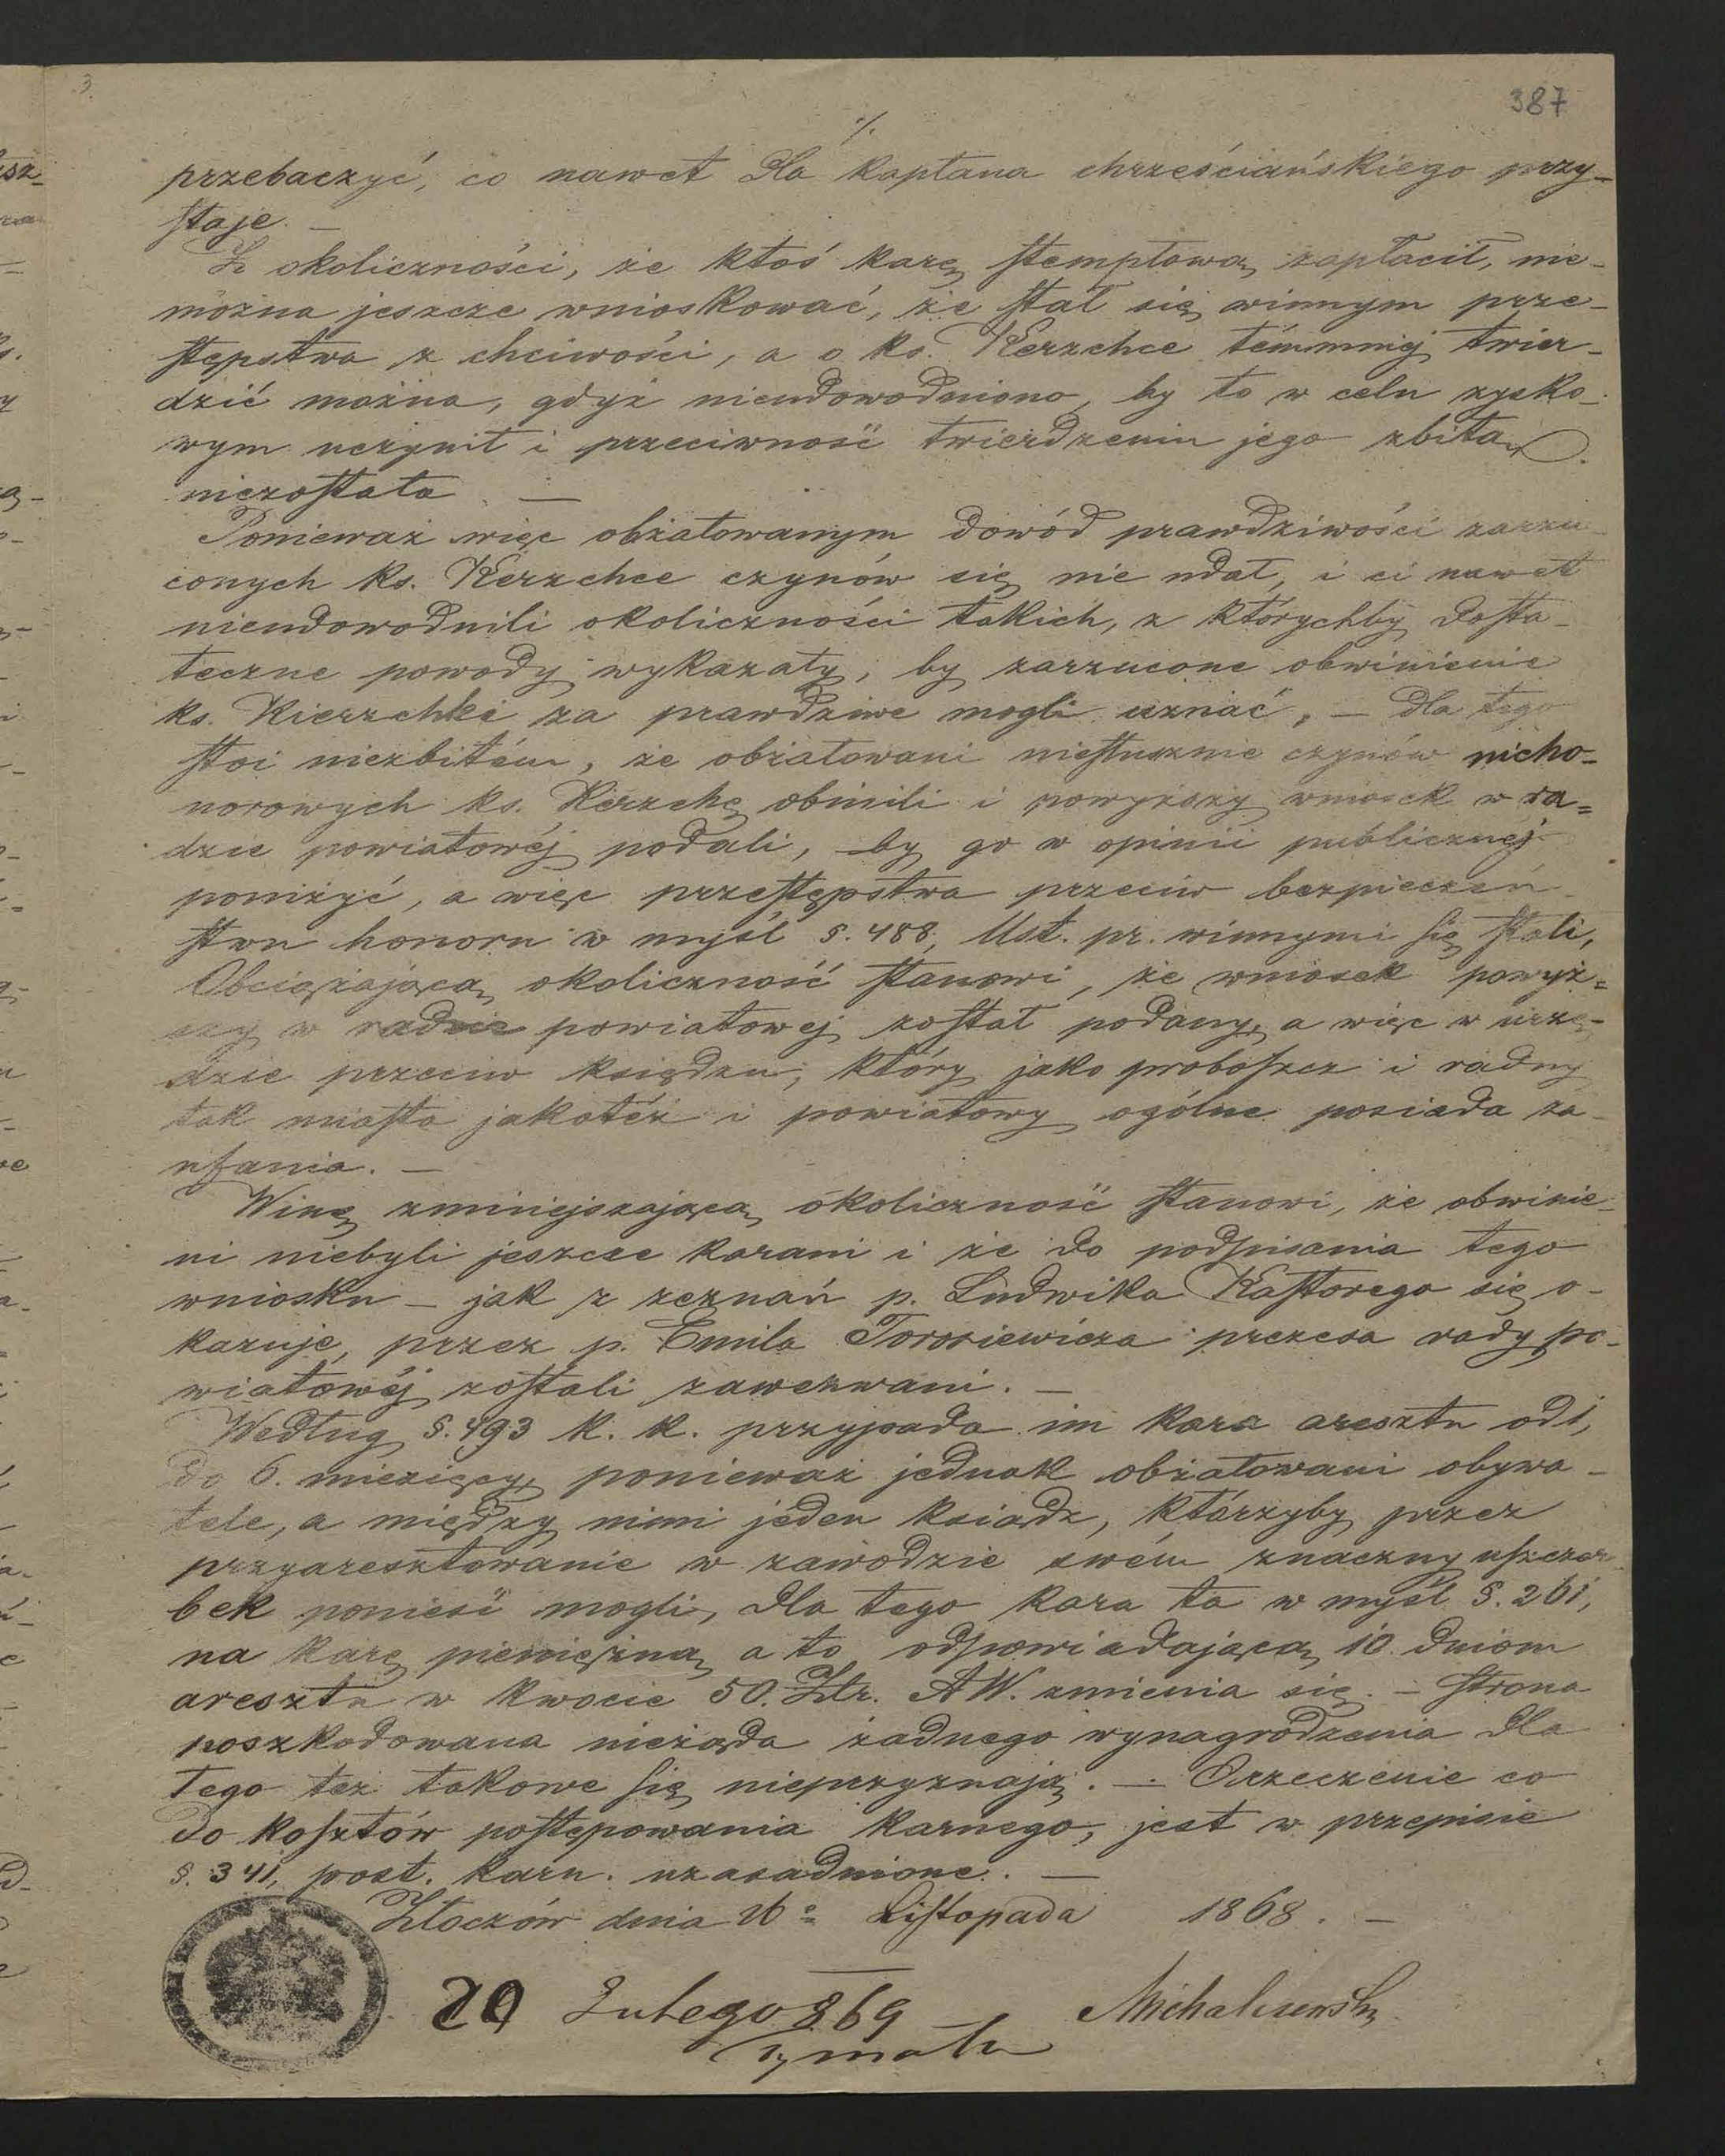 3.
387
./.
przebaczyć, co nawet dla kapłana chrześciańskiego przy=
staje. —
Z okoliczności, że ktoś karę stemplową zapłacił, nie-
można jeszcze wnioskować, że stał się winnym prze-
stępstwa z chciwości, a o ks. Kerzchce témmniéj twier-
dzić można, gdyż nieudowodniono, by to w celu zysko-
wym uczynił i przeciwność twierdzeniu jego zbitą
niezostała. —
Ponieważ więc obżałowanym dowód prawdziwości zarzu
conych ks. Kerzchce czynów się nie udał, i ci nawet
nieudowodnili okoliczności takich, z którychby dosta-
teczne powody wykazały, by zarzucone obwinienie
ks. Kierzchki za prawdziwe mogli uznać, — dla tego
stoi niezbitém, że obżałowani niesłusznie czynów nieho-
norowych ks. Kierzchę obinili i powyższy wniosek w ra=
dzie powiatowéj podali, by go w opinii publicznéj
poniżyć, a więc przestępstwa przeciw bezpieczeń-
stwu honoru w myśl §. 488, Ust. pr. winnymi się stali,
Obciążającą okoliczność stanowi, że wniosek powyż=
szy w radzie powiatowej został podany, a więc w urzę-
dzie przeciw księdzu, który jako proboszcz i radny
tak miasta jakotéż i powiatowy ogólne posiada za-
ufania. —
Winę zmniejszającą okoliczność stanowi, że obwinie-
ni niebyli jeszcze karani i że do podpisania tego
wniosku — jak z zeznań p. Ludwika Kastorego się o-
kazuje, przez p. Emila Torosiewicza prezesa rady po-
wiatowéj zostali zawezwani. —
Według §. 493 k. k. przypada im kara aresztu od 1,
do 6. miesięcy, ponieważ jednak obżałowani obywa-
tele, a między nimi jeden ksiądz, którzyby przez
przyaresztowanie w zawodzie swém znaczny uszczer
bek ponieść mogli, dla tego kara ta w myśl §. 261,
na karę pieniężną, a to odpowiadającą 10. dniom
aresztu w kwocie 50. Złr. AW. zmienia się. — Strona
poszkodowana nieżąda żadnego wynagrodzenia dla
tego też takowe się nieprzyznają. — Orzeczenie co
do kosztów postępowania karnego, jest w przepisie
§. 341, post. karn. uzasadnione. —
Złoczów dnia 16º Listopada 1868. —
20 Lutego 869 Michalewski